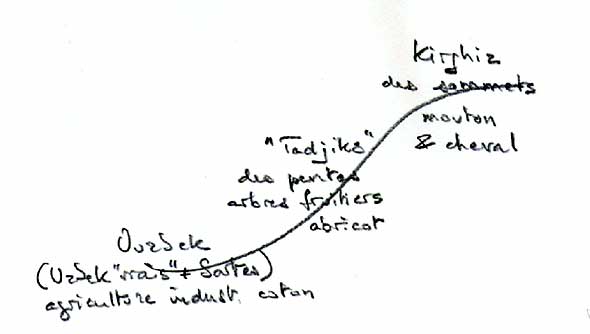 Kirghiz
des sommets
mouton
& cheval
"Tadjiks"
des pentes
arbres fruitiers
abricot
Ouzbek
(Uzbek "vrais" + Sartes)
agriculture indust. coton